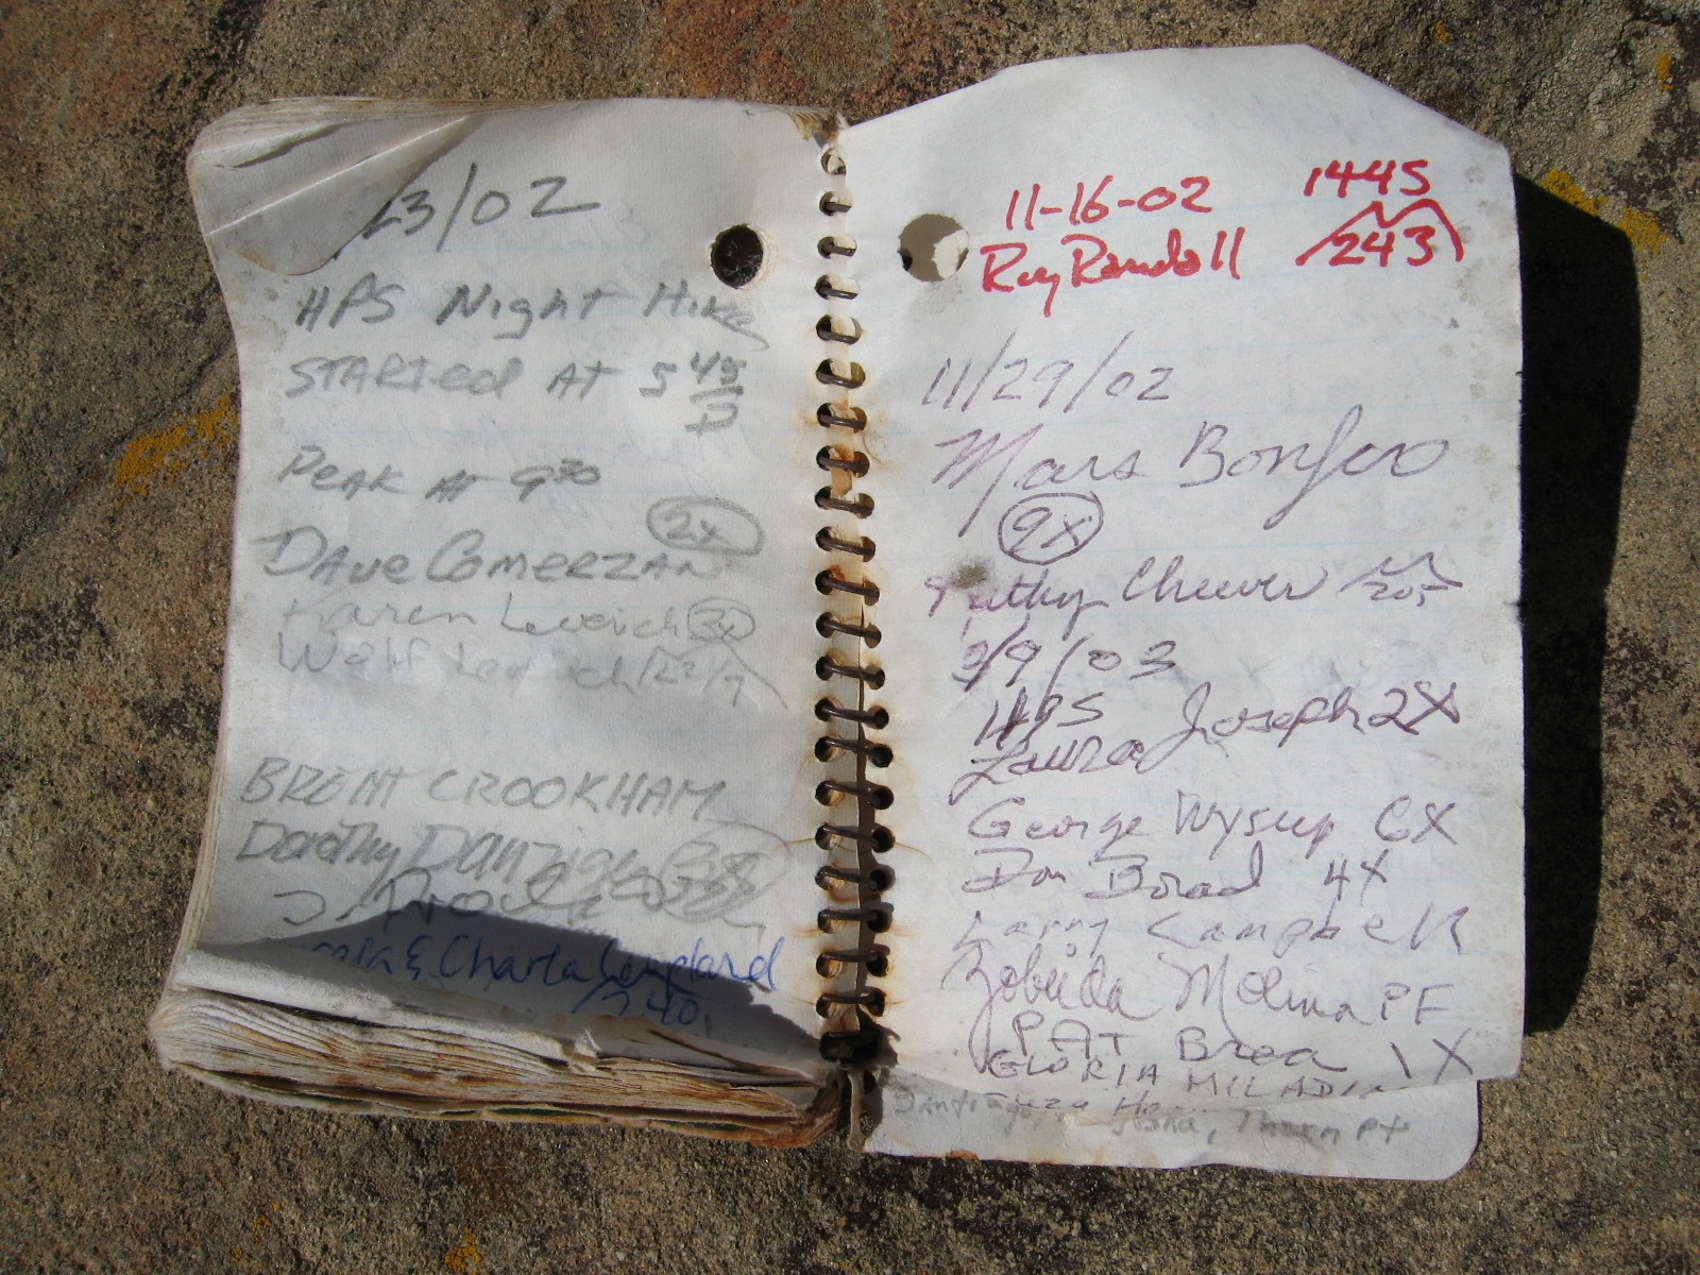 23/02
HPS Night Hike
STARTed At 5 45
P
Peak At 9 30
2x
Dave Comerzan
Karen Leverich 3x
Wolf Leverich
BRENT CROOKHAM
Dorothy Danziger
& Charla
240
11-16-02 1445
Ray Randall 243
11/29/02
Mars Bonfire
9x
Kathy Cheever
2/9/03
Laura Joseph 2X
George Wysup 6X
Don Borad 4X
Larry Campbell
Zobeida Molina PF
PAT Brea 1X
GLORIA MILADIN